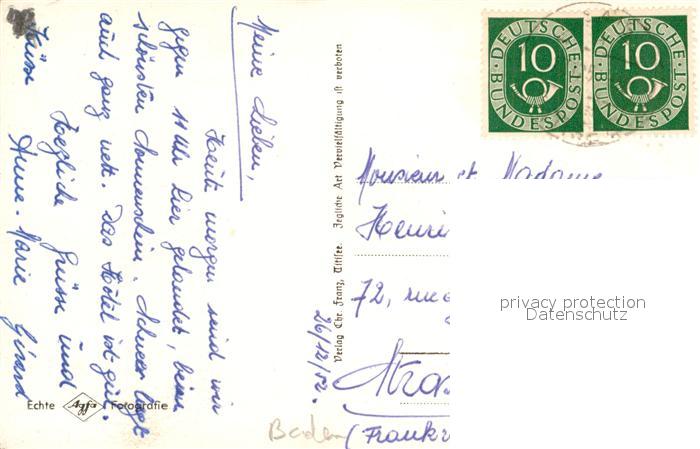 Meine Lieben,
Heute morgen sind wir
gegen 11 Uhr hier gelandet, beim
schönsten Sonnenschein. Schnee liegt
auch ganz nett. Das Hôtel ist gut.
Herzliche Grüsse und
Küsse
Anne-Marie Girard
Echte Agfa Fotografie
Verlag Chr. Franz, Titisee. Jegliche Art Vervielfältigung ist verboten
26/12/52.
DEUTSCHE BUNDESPOST
10
DEUTSCHE BUNDESPOST
10
Monsieur et Madame
Henri
72, rue
Stras
(Frankr
Baden
privacy protection
Datenschutz